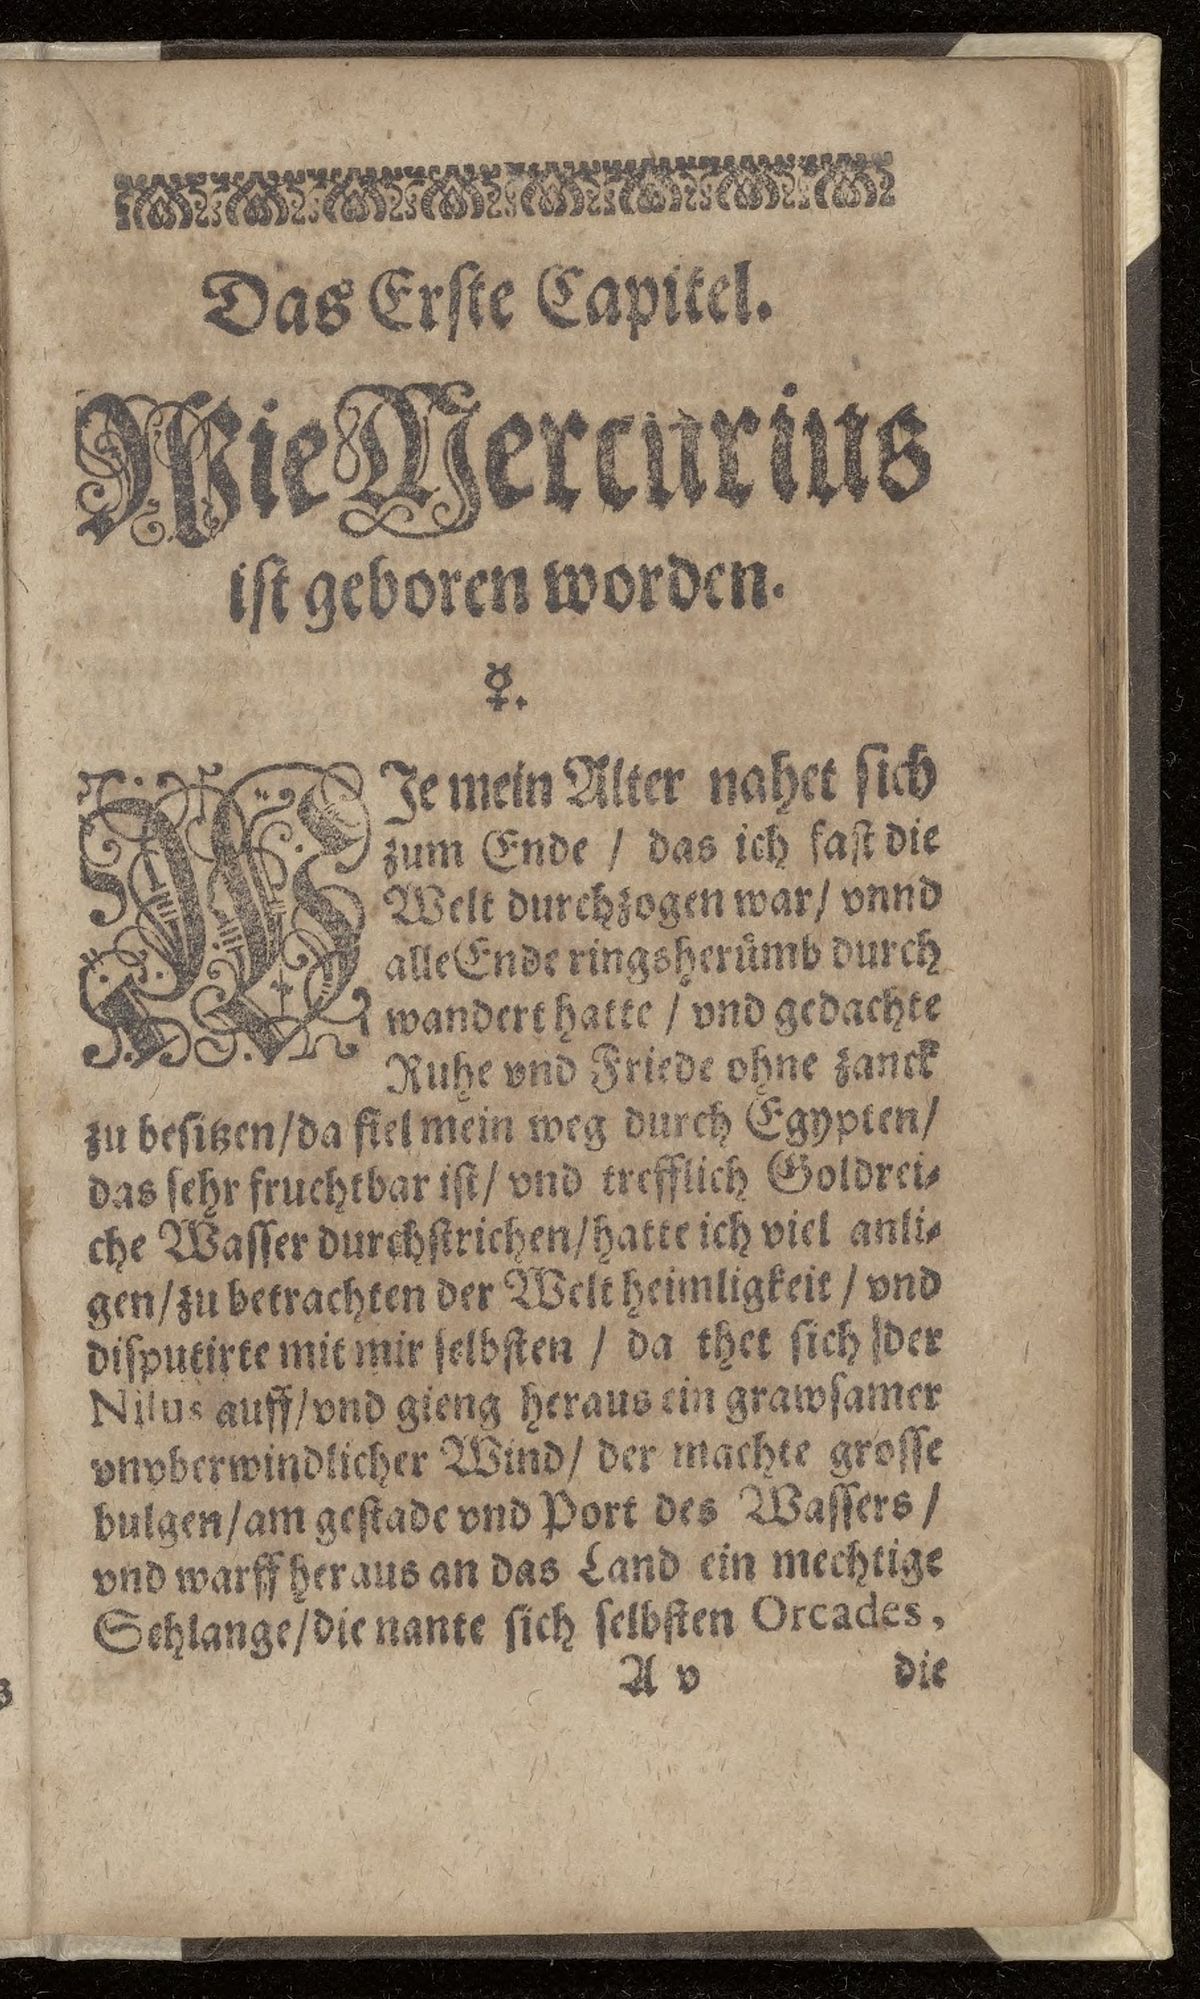 Das Erste Capitel.
Wie Mercurius
ist geboren worden.
☿.
WJe mein Alter nahet sich
zum Ende / das ich fast die
Welt durchzogen war / vnnd
alle Ende ringsherůmb durch
wandert hatte / vnd gedachte
Ruhe vnd Friede ohne zanck
zu besitzen / da fiel mein weg durch Egypten /
das sehr fruchtbar ist / vnd trefflich Goldrei-
che Wasser durchstrichen / hatte ich viel anli-
gen / zu betrachten der Welt heimligkeit / vnd
disputirte mit mir selbsten / da thet sich der
Nilus auff / vnd gieng heraus ein grawsamer
vnvberwindlicher Wind / der machte grosse
bulgen / am gestade vnd Port des Wassers /
vnd warff heraus an das Land ein mechtige
Sehlange / die nante sich selbsten Orcades,
A v die